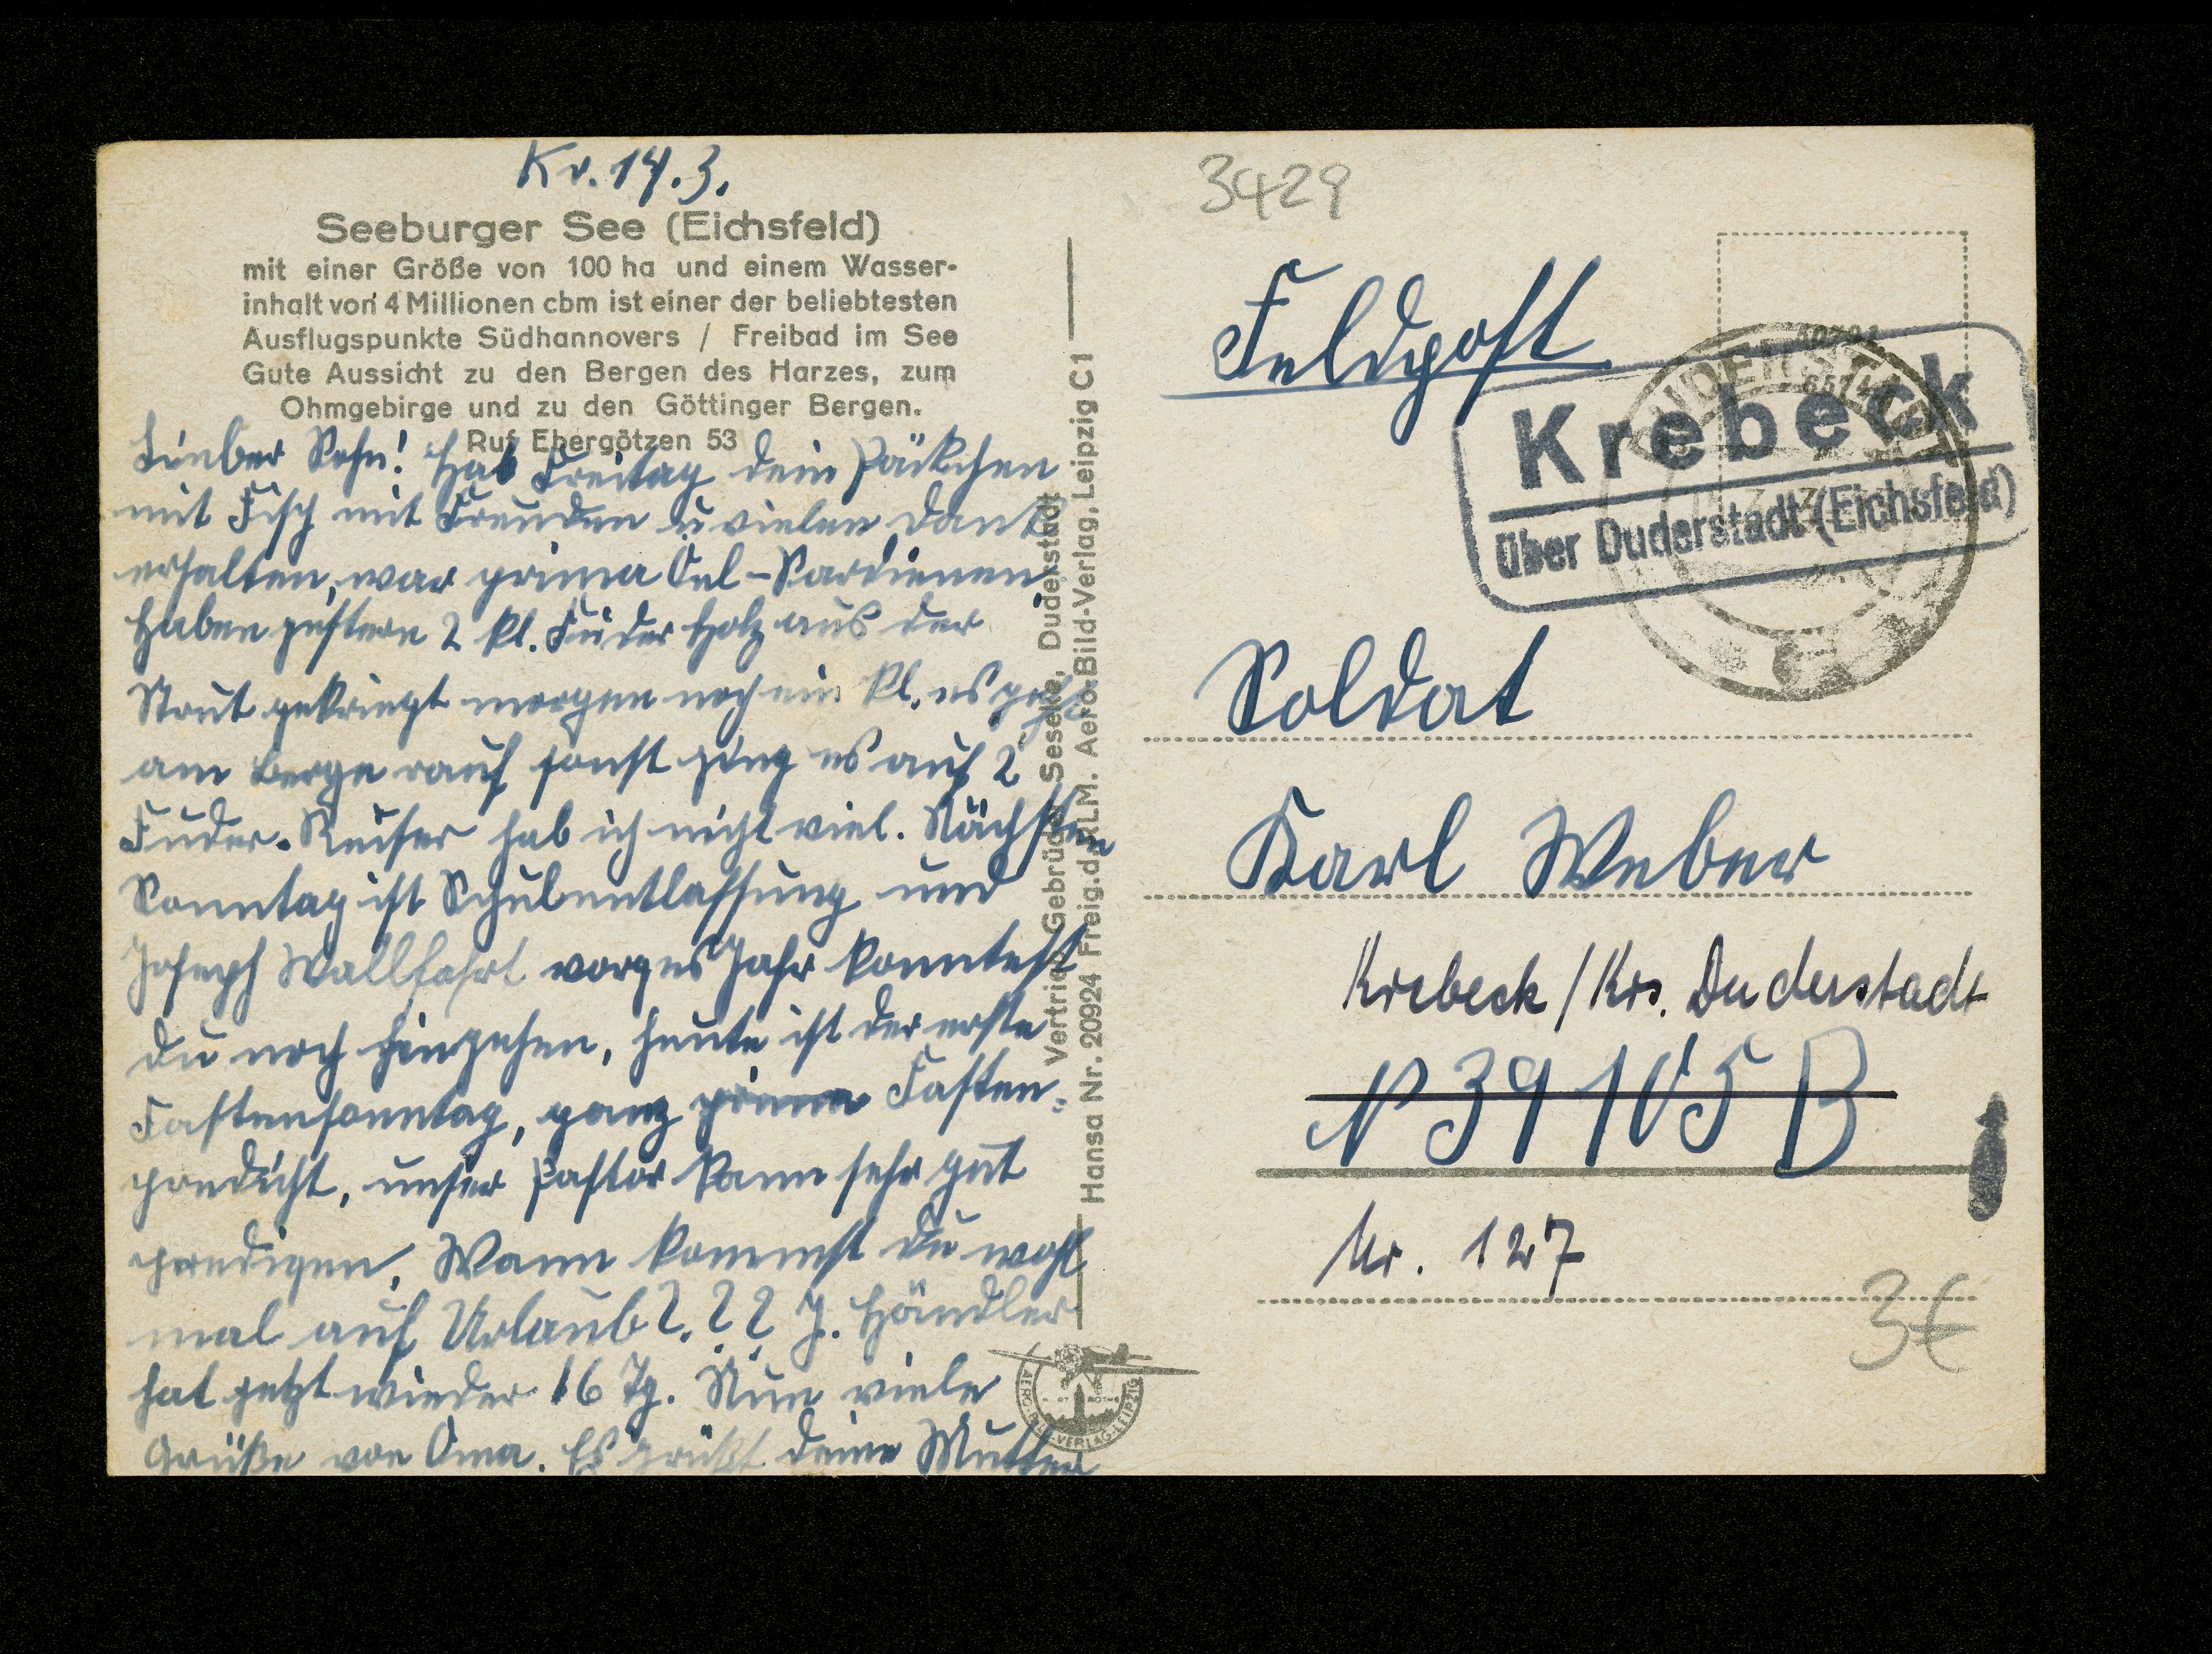 Kr. 14.3.
Seeburger See (Eichsfeld)
mit einer Größe von 100 ha und einem Wasser-
inhalt von 4 Millionen cbm ist einer der beliebtesten
Ausflugspunkte Südhannovers / Freibad im See
Gute Aussicht zu den Bergen des Harzes, zum
Ohmgebirge und zu den Göttinger Bergen.
Ruf Ebergötzen 53
Lieber Sohn! Hab Freitag dein Päckchen
mit Fisch mit Freuden u vielen Dank
erhalten, war prima Oel-Sardienen
Haben gestern 2 kl. Fuder Holz aus der
Strut gekriegt morgen noch ein kl. es geht
am Berge rauf sonst ging es auf 2
Fuder. Reiser hab ich nicht viel. Nächsten
Sonntag ist Schulentlassung und
Joseph Wallfahrt voriges Jahr konntest
du noch hingehen, heute ist der erste
Fastensonntag, ganz prima Fasten-
predicht, unser Pastor kann sehr gut
predigen. Wann kommst du wohl
mal auf Urlaub? ? ? J. Händler
hat jetzt wieder 16 Tg. Nun viele
Grüße von Oma. Es grüßt deine Mutter
Vertrieb: Gebrüder Seseke, Duderstadt
Hansa Nr. 20924 Freig.d.RLM. Aero-Bild-Verlag, Leipzig C1
AERO-BILD-VERLAG-LEIPZIG
3429
Feldpost
DUDERSTADT
Krebeck
über Duderstadt (Eichsfeld)
Soldat
Karl Weber
Krebeck / Krs. Duderstadt
N 39105 B
Nr. 127
3€